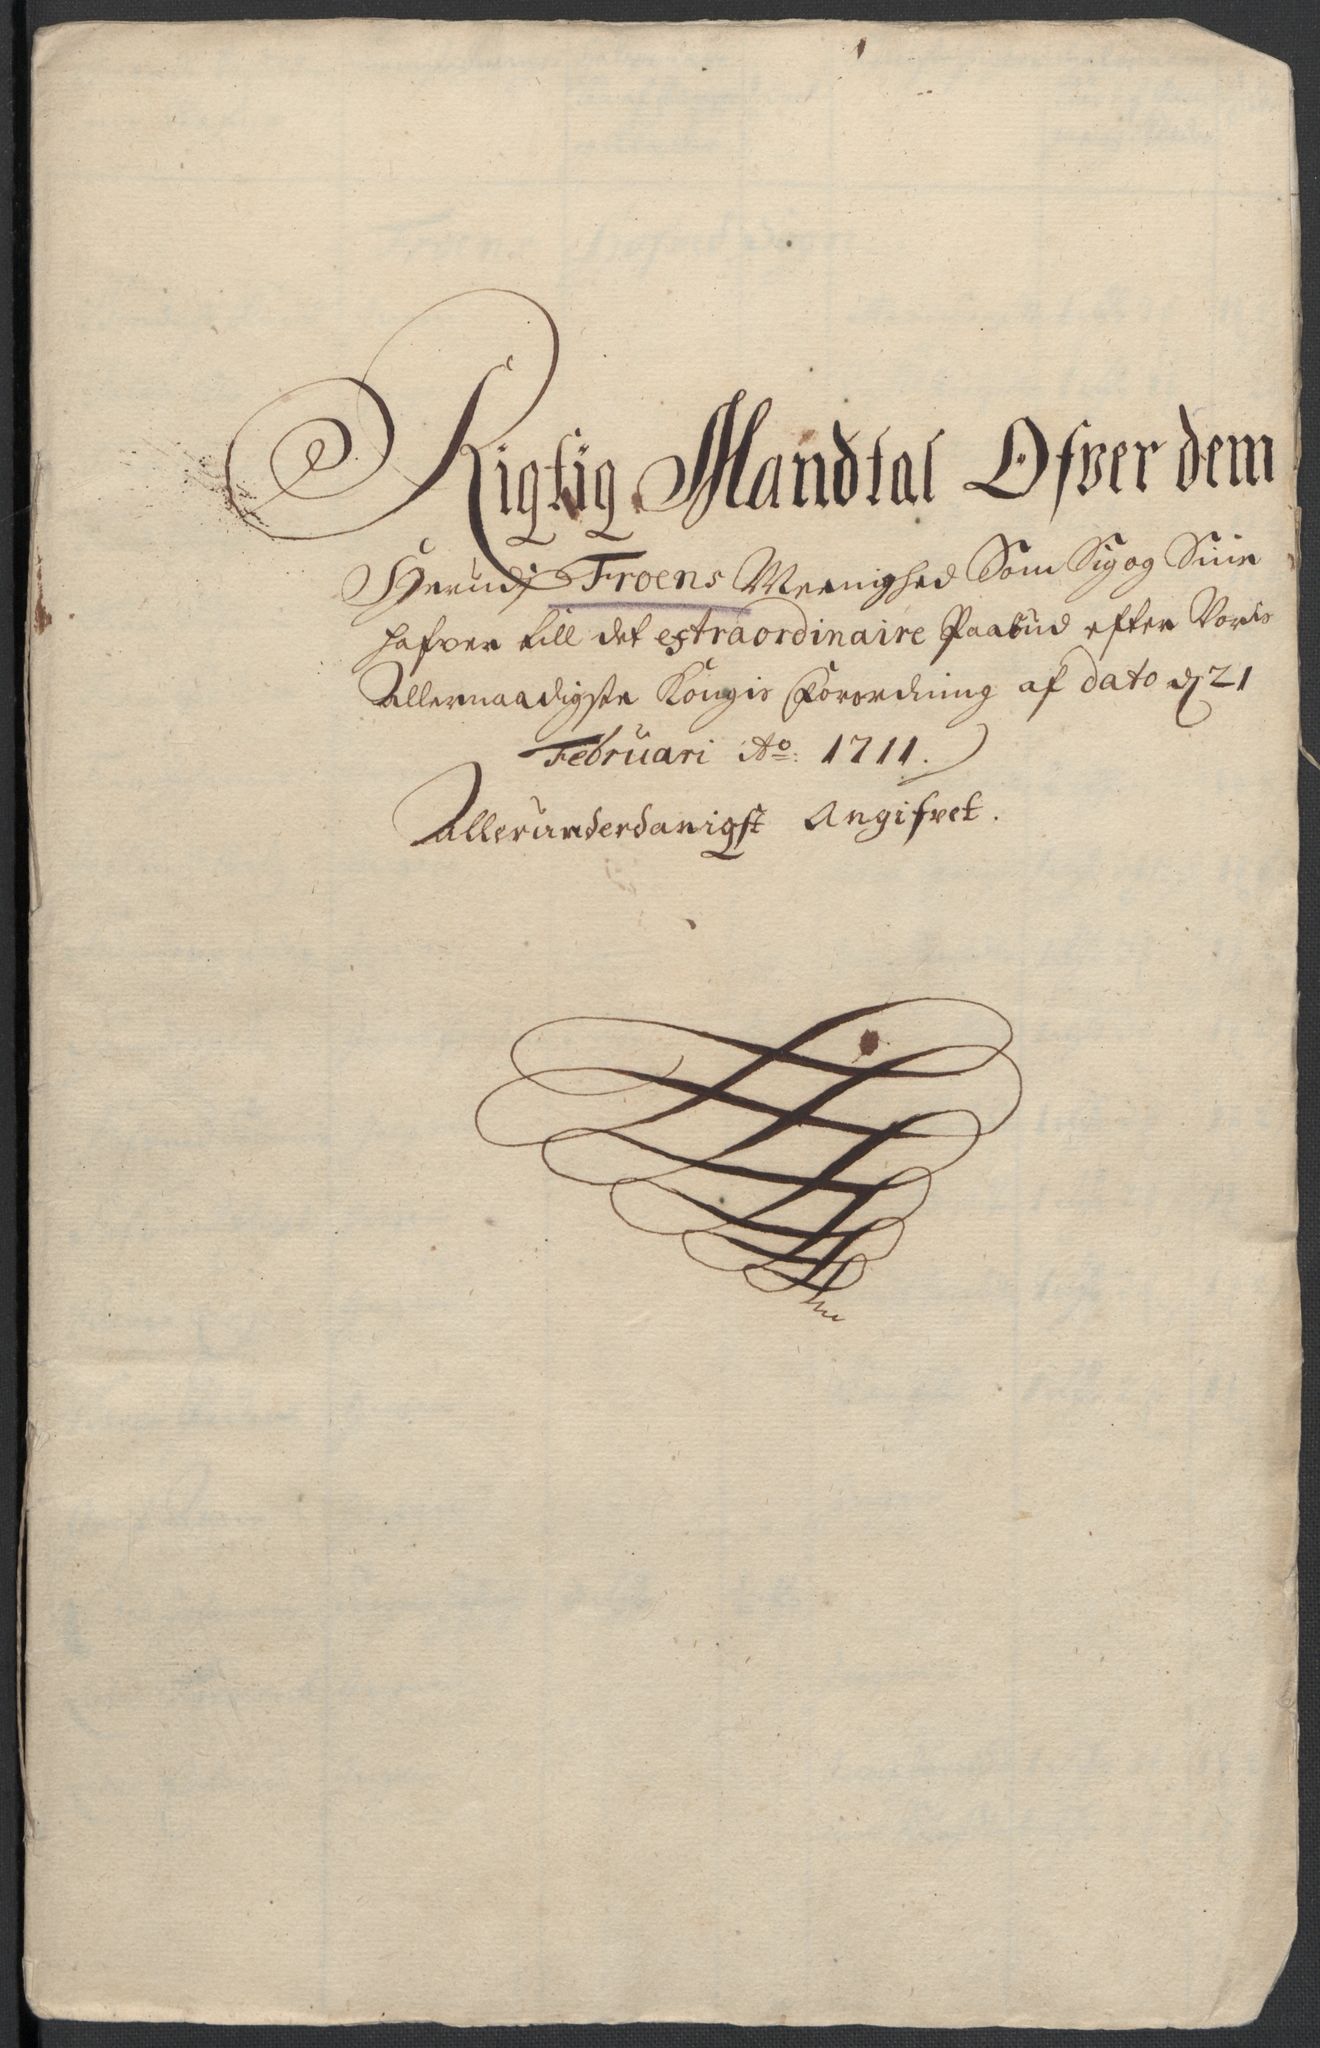 Rigtig Mandtal Ofver dem
Herudj Froens Meenighed Som Sig og Siine
hafver till det extraordinaire Paabud efter Voris
Allernaadigste Kongis Forordning af dato d 21
Februari Ao: 1711.
Allerunderdanigst Angifvet.